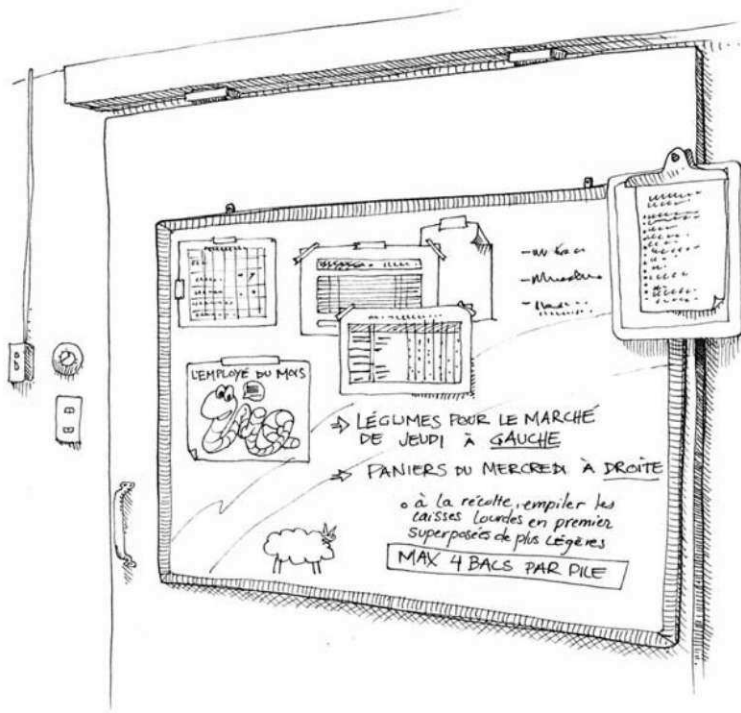 L'EMPLOYÉ DU MOIS
⇒ LÉGUMES POUR LE MARCHÉ
DE JEUDI À GAUCHE
⇒ PANIERS DU MERCREDI À DROITE
o à la récolte, empiler les
caisses lourdes en premier
superposées de plus légères
MAX 4 BACS PAR PILE